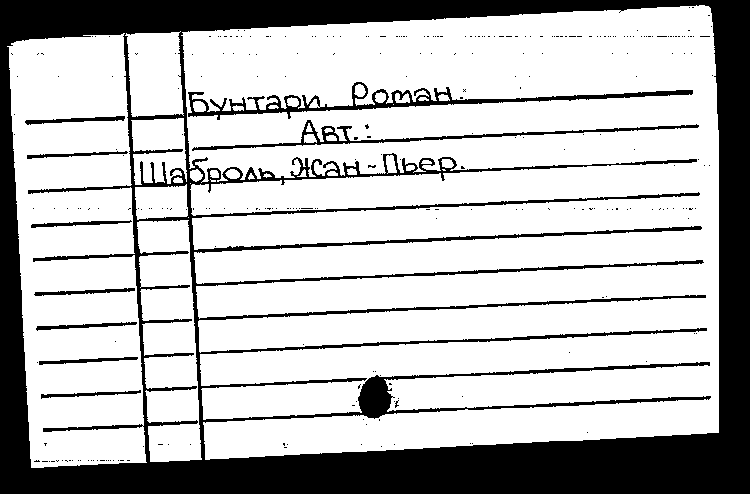 Бунтари. Роман.
Авт.:
Шаброль, Жан-Пьер.